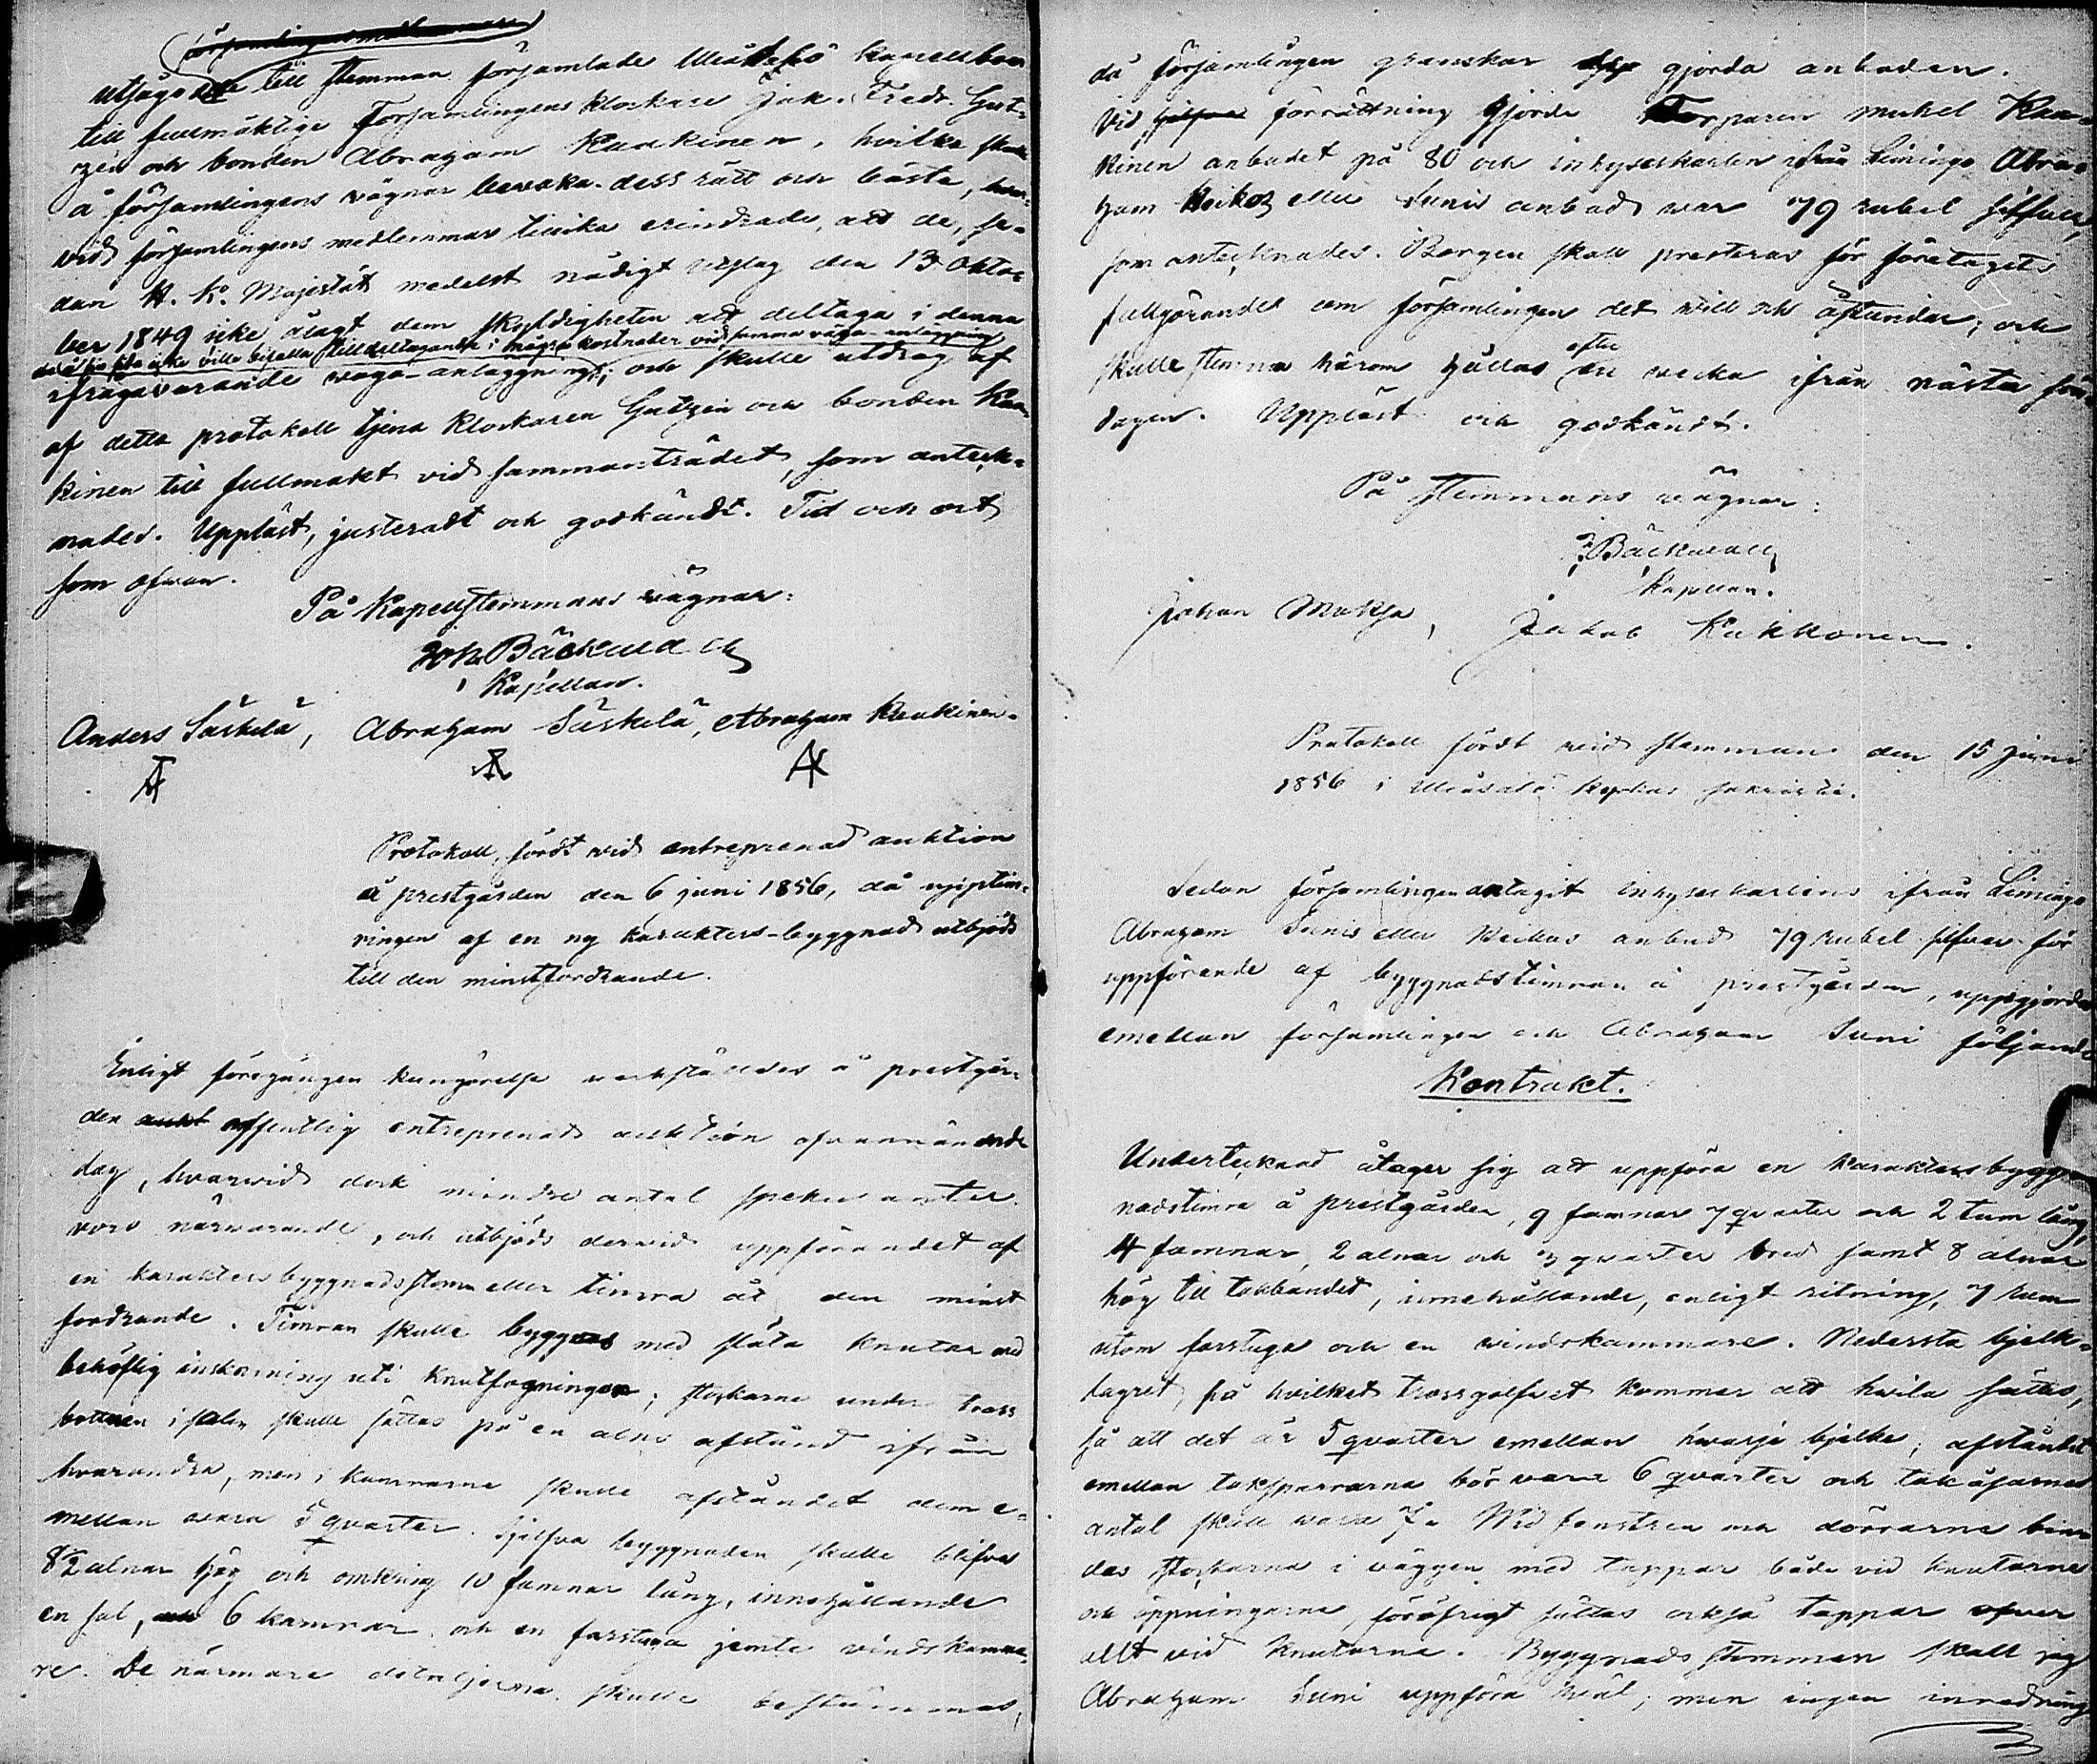 församlingsmedlemmare
utsågo de till stemman församlade kapellboer
till fullmäktige Församlingens klockare Jak. Fredr. Gut-
zén och bonden Abraham Kaukinen, hvilka skulle
å församlingens vägnar bevaka dess rätt och bästa, hvar-
vid församlingens medlemmar tillika erindrade, att de, se-
dan H. K. Majestät medelst nådigt utslag den 13 Okto-
ber 1849 icke ålagt dem skyldigheten att deltaga i denna
icke ville bifalla till deltagande i några kostnader vid samma väga-anläggning
ifrågavarande väga-anläggning; och skulle utdrag af
af detta protokoll tjena klockaren Gutzén och bonden Kau-
kinen till fullmakt vid sammanträdet, som anteck-
nades. Uppläst, justeradt och godkändt. Tid och ort
som ofvan.
På Kapellstemmans vägnar:
Joh. Bäckvall
Kapellan.
Anders Säskelä, Abraham Säskelä, Abraham Kaukinen.
Protokoll, fördt vid entreprenad auktion
å prestgården den 6 juni 1856, då upptim-
ringen af en ny karakters-byggnad utbjöds
till den minstfordrande.
Enligt föregången kungörelse verkställdes å prestgår-
den aukt offentlig entreprenad auktion ofvannämnde
dag, hvarvid dock mindre antal spekulanter
voro närvarande, och utbjöds dervid uppförandet af
en karakters byggnads stomm eller timra åt den minst
fordrande. Timran skulle byggas med släta knutar med
behöflig inskärning uti knutfogningen; stockarne under tross
bottnen i salen skulle sättas på en alns afstånd ifrån
hvarandra, men i kamrarne skulle afståndet dem e-
mellan vara 5 qvarter. Sjelfva byggnaden skulle blifva
8½ alnar hög och omkring 10 famnar lång, innehållande
en sal, 6 kamrar och en farstuga jemte vindskamma-
re. De närmare detaljerna skulle bestämmas,
då församlingen granskar gjorda anbuden.
Vid förrättning gjorde Torparen Mickel Kau-
kinen anbudet på 80 och inhyseskarlen ifrån Limingo Abra-
ham Keikas eller Sunis anbud var 79 rubel silfver,
som antecknades. Borgen skall presteras för företagets
fullgörande om församlingen det vill och åstundar; och
skulle stemma härom hållas efter en vecka ifrån nästa sön-
dagen. Uppläst och godkändt.
På stemmans vägnar:
J. Bäckvall
Kapellan.
Johan Muksa, Jakob Kukkonen.
Protokoll fördt vid stemman den 15 juni
1856 i kyrkas sakristi.
Sedan församlingen antagit inhyseskarlens ifrån Limingo
Abraham Sunis eller Keikas anbud 79 rubel silfver för
uppförande af byggnadstimran å prestgården, uppgjordes
emellan församlingen och Abraham Suni följande
Kontrakt.
Undertecknad åtager sig att uppföra en karaktersbygg-
nadstimra å prestgården, 9 famnar 7 qvarter och 2 tum lång,
4 famnar, 2 alnar och 3 qvarter bred samt 8 alnar
hög till takbandet, innehållande, enligt ritning, 7 rum
utom farstuga och en vindskammare. Nedersta bjelk-
lagret, på hvilket trossgolfvet kommer att hvila sättes,
så att det är 5 qvarter emellan hvarje bjelke; afståndet
emellan taksparrarna bör vara 6 qvarter och takåsarnes
antal skall vara 7. Vid fenstren och dörrarne bin-
das stockarna i väggen med tappar både vid knutarne
och öppningarne, föröfrigt sättas också tappar öfver
allt vid knutarne. Byggnads stommen skall jag
Abraham Suni uppföra väl; men ingen inredning